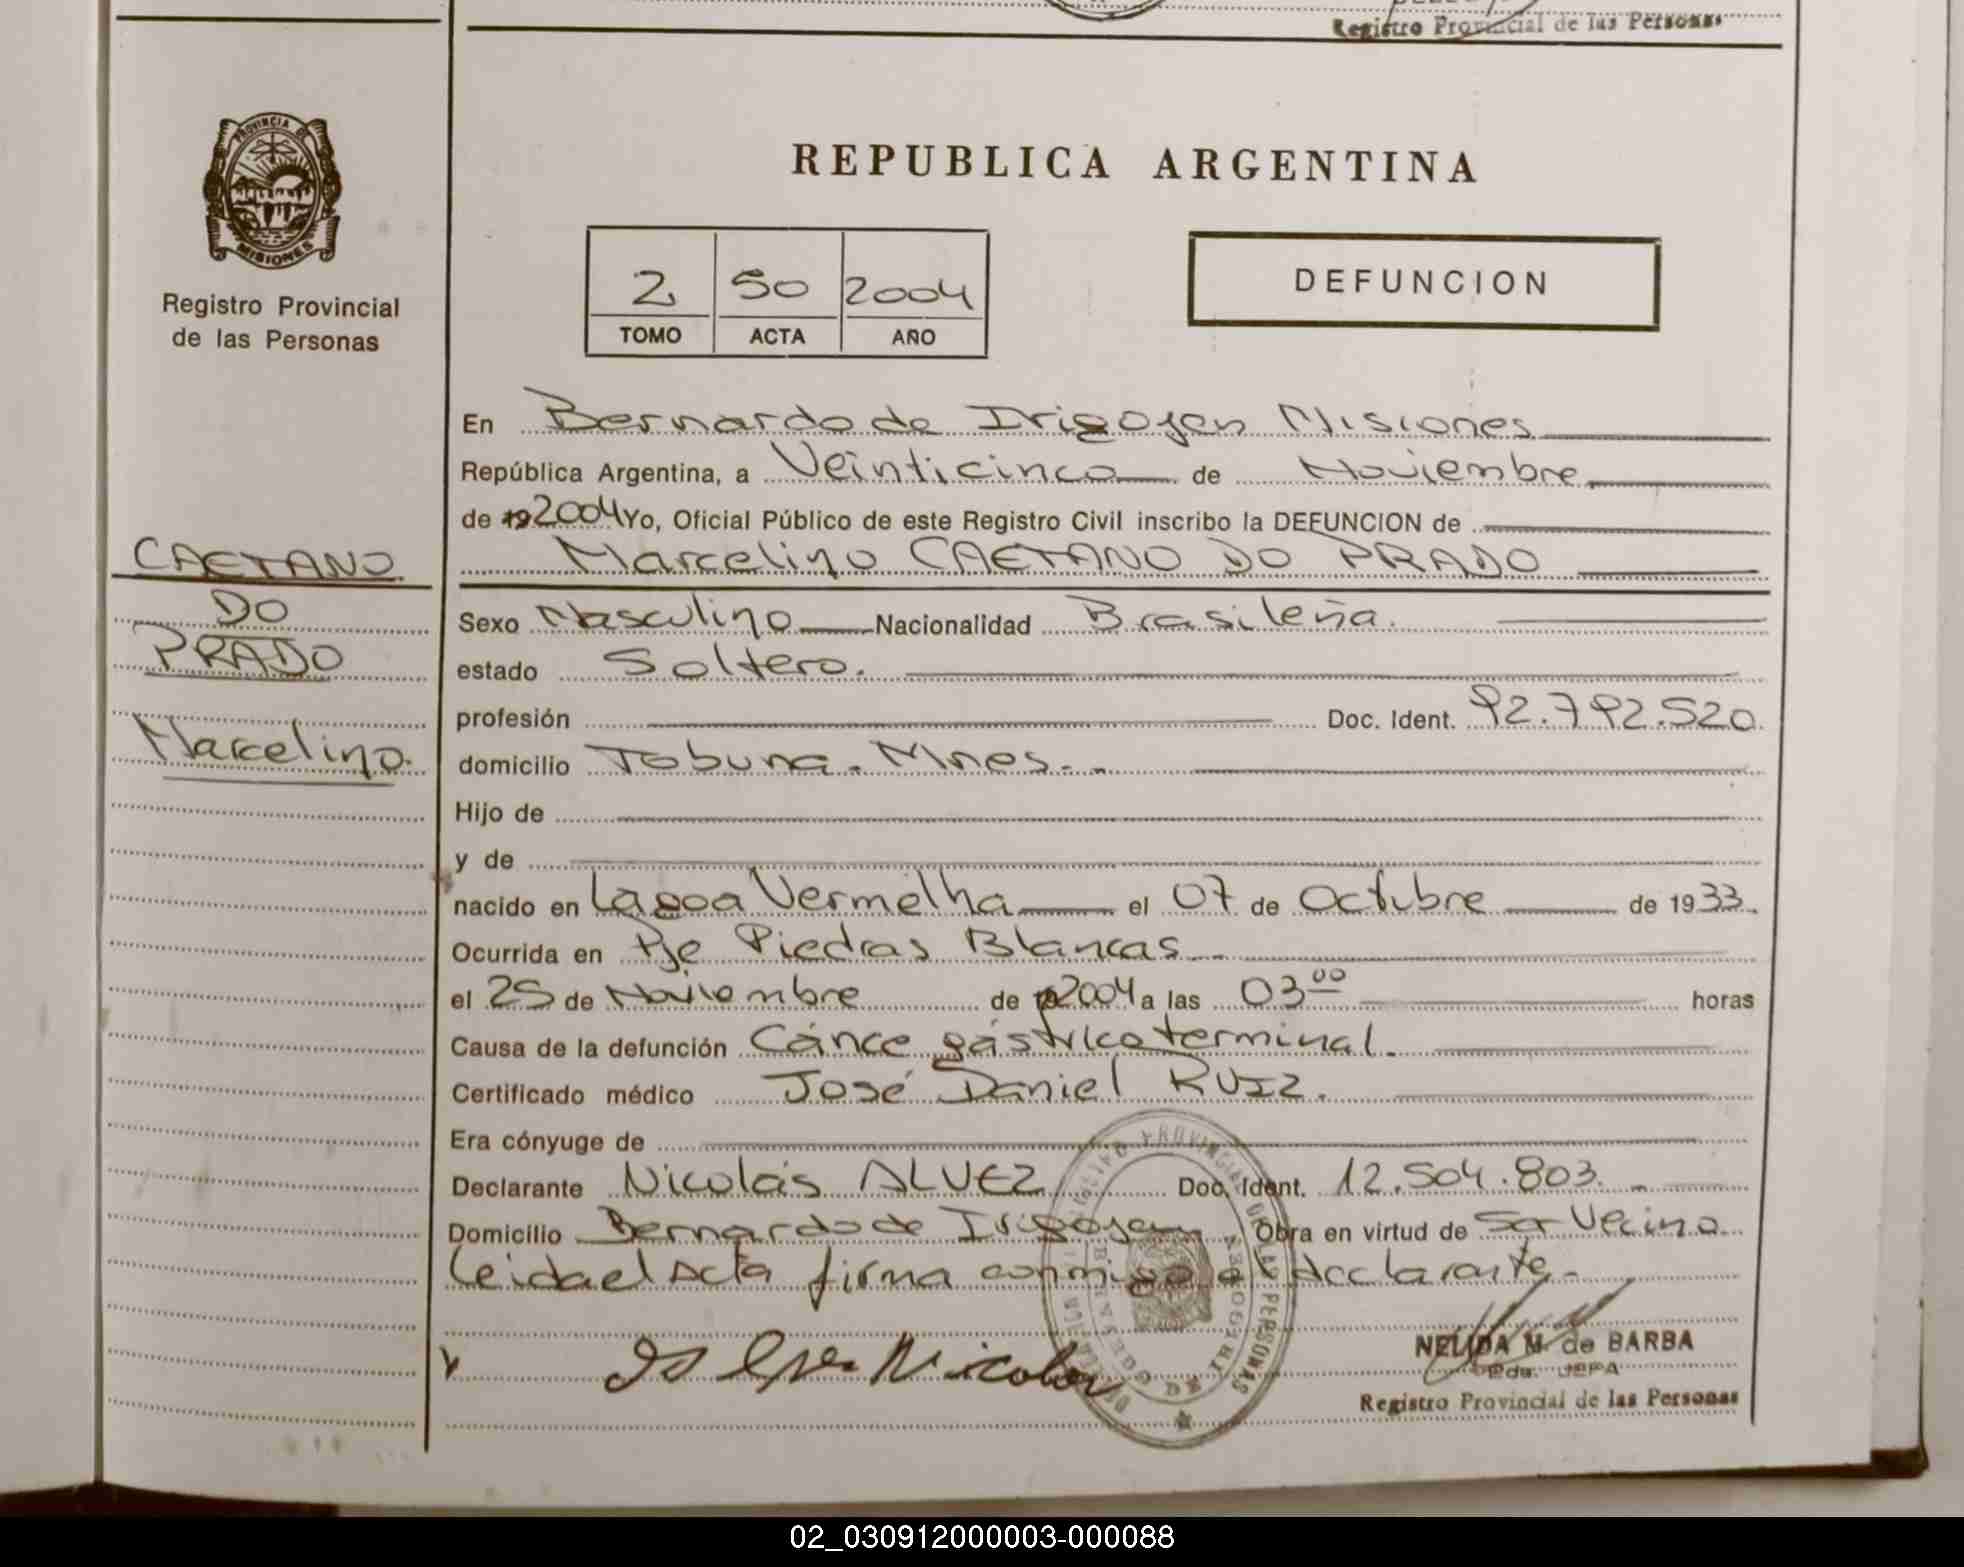 Registro Provincial de las Personas
PROVINCIA DE
MISIONES
Registro Provincial
de las Personas
REPUBLICA ARGENTINA
2 50 2004
TOMO ACTA AÑO
DEFUNCION
En Bernardo de Irigoyen Misiones
República Argentina, a Veinticinco de Noviembre
de 19 2004 Yo, Oficial Público de este Registro Civil inscribo la DEFUNCION de
Marcelino CAETANO DO PRADO
CAETANO
DO
PRADO
Marcelino.
Sexo Masculino Nacionalidad Brasileña.
estado Soltero.
profesión Doc. Ident. 92.792.520
domicilio Tobuna. Mnes.
Hijo de
y de
nacido en Lagoa Vermelha el 07 de Octubre de 1933
Ocurrida en Pje Piedras Blancas
el 25 de Noviembre de 2004 a las 03 00 horas
Causa de la defunción Cánce gástrico terminal.
Certificado médico José Daniel RUIZ.
Era cónyuge de
Declarante Nicolás ALVEZ Doc. Ident. 12.504.803.
Domicilio Bernardo de Irigoyen Obra en virtud de Ser Vecino
Leida el Acta firma conmigo el declarante.
NELIDA M. de BARBA
Registro Provincial de las Personas
02_030912000003-000088